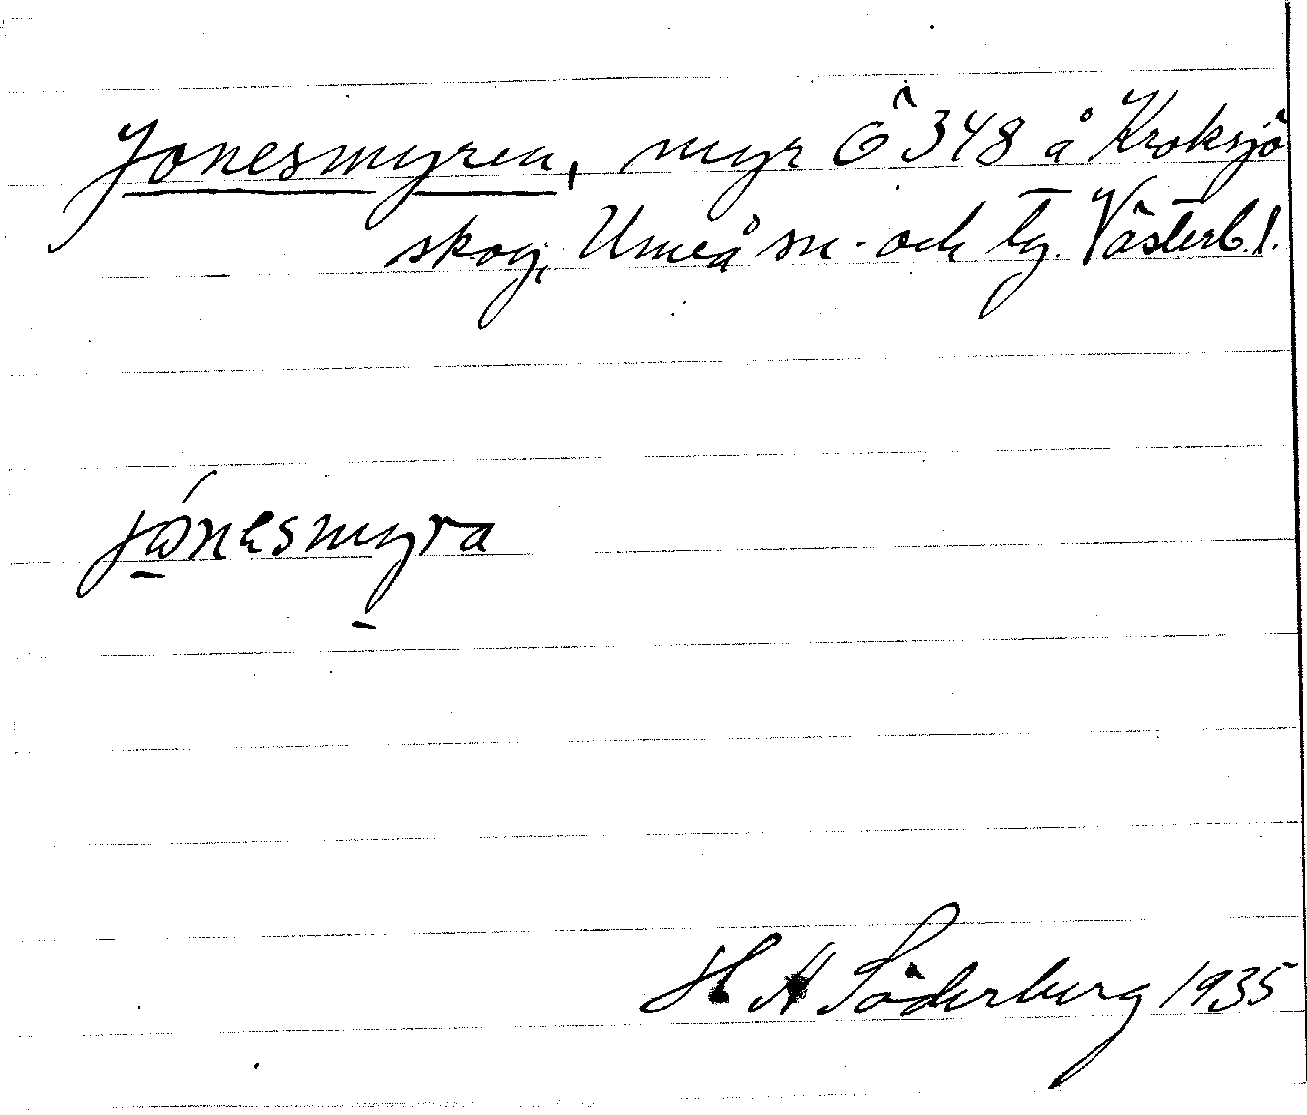 Jonesmyren, myr Ö 348 å Kroksjö
skog, Umeå sn. och tg. Västerb. l.
jónesmyra
H A Söderberg 1935